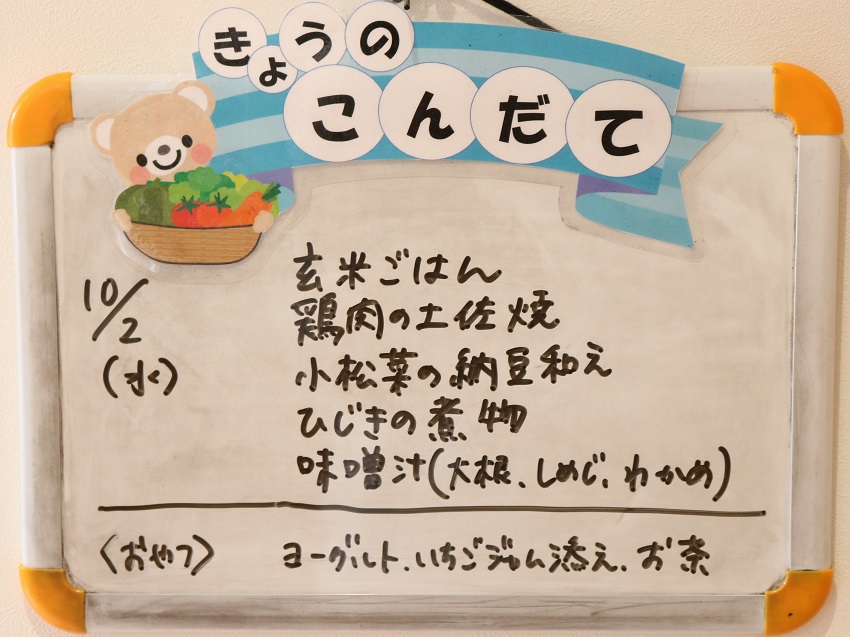 きょうの
こんだて
10/2
(水)
玄米ごはん
鶏肉の土佐焼
小松菜の納豆和え
ひじきの煮物
味噌汁(大根、しめじ、わかめ)
〈おやつ〉 ヨーグルト、いちごジャム添え、お茶